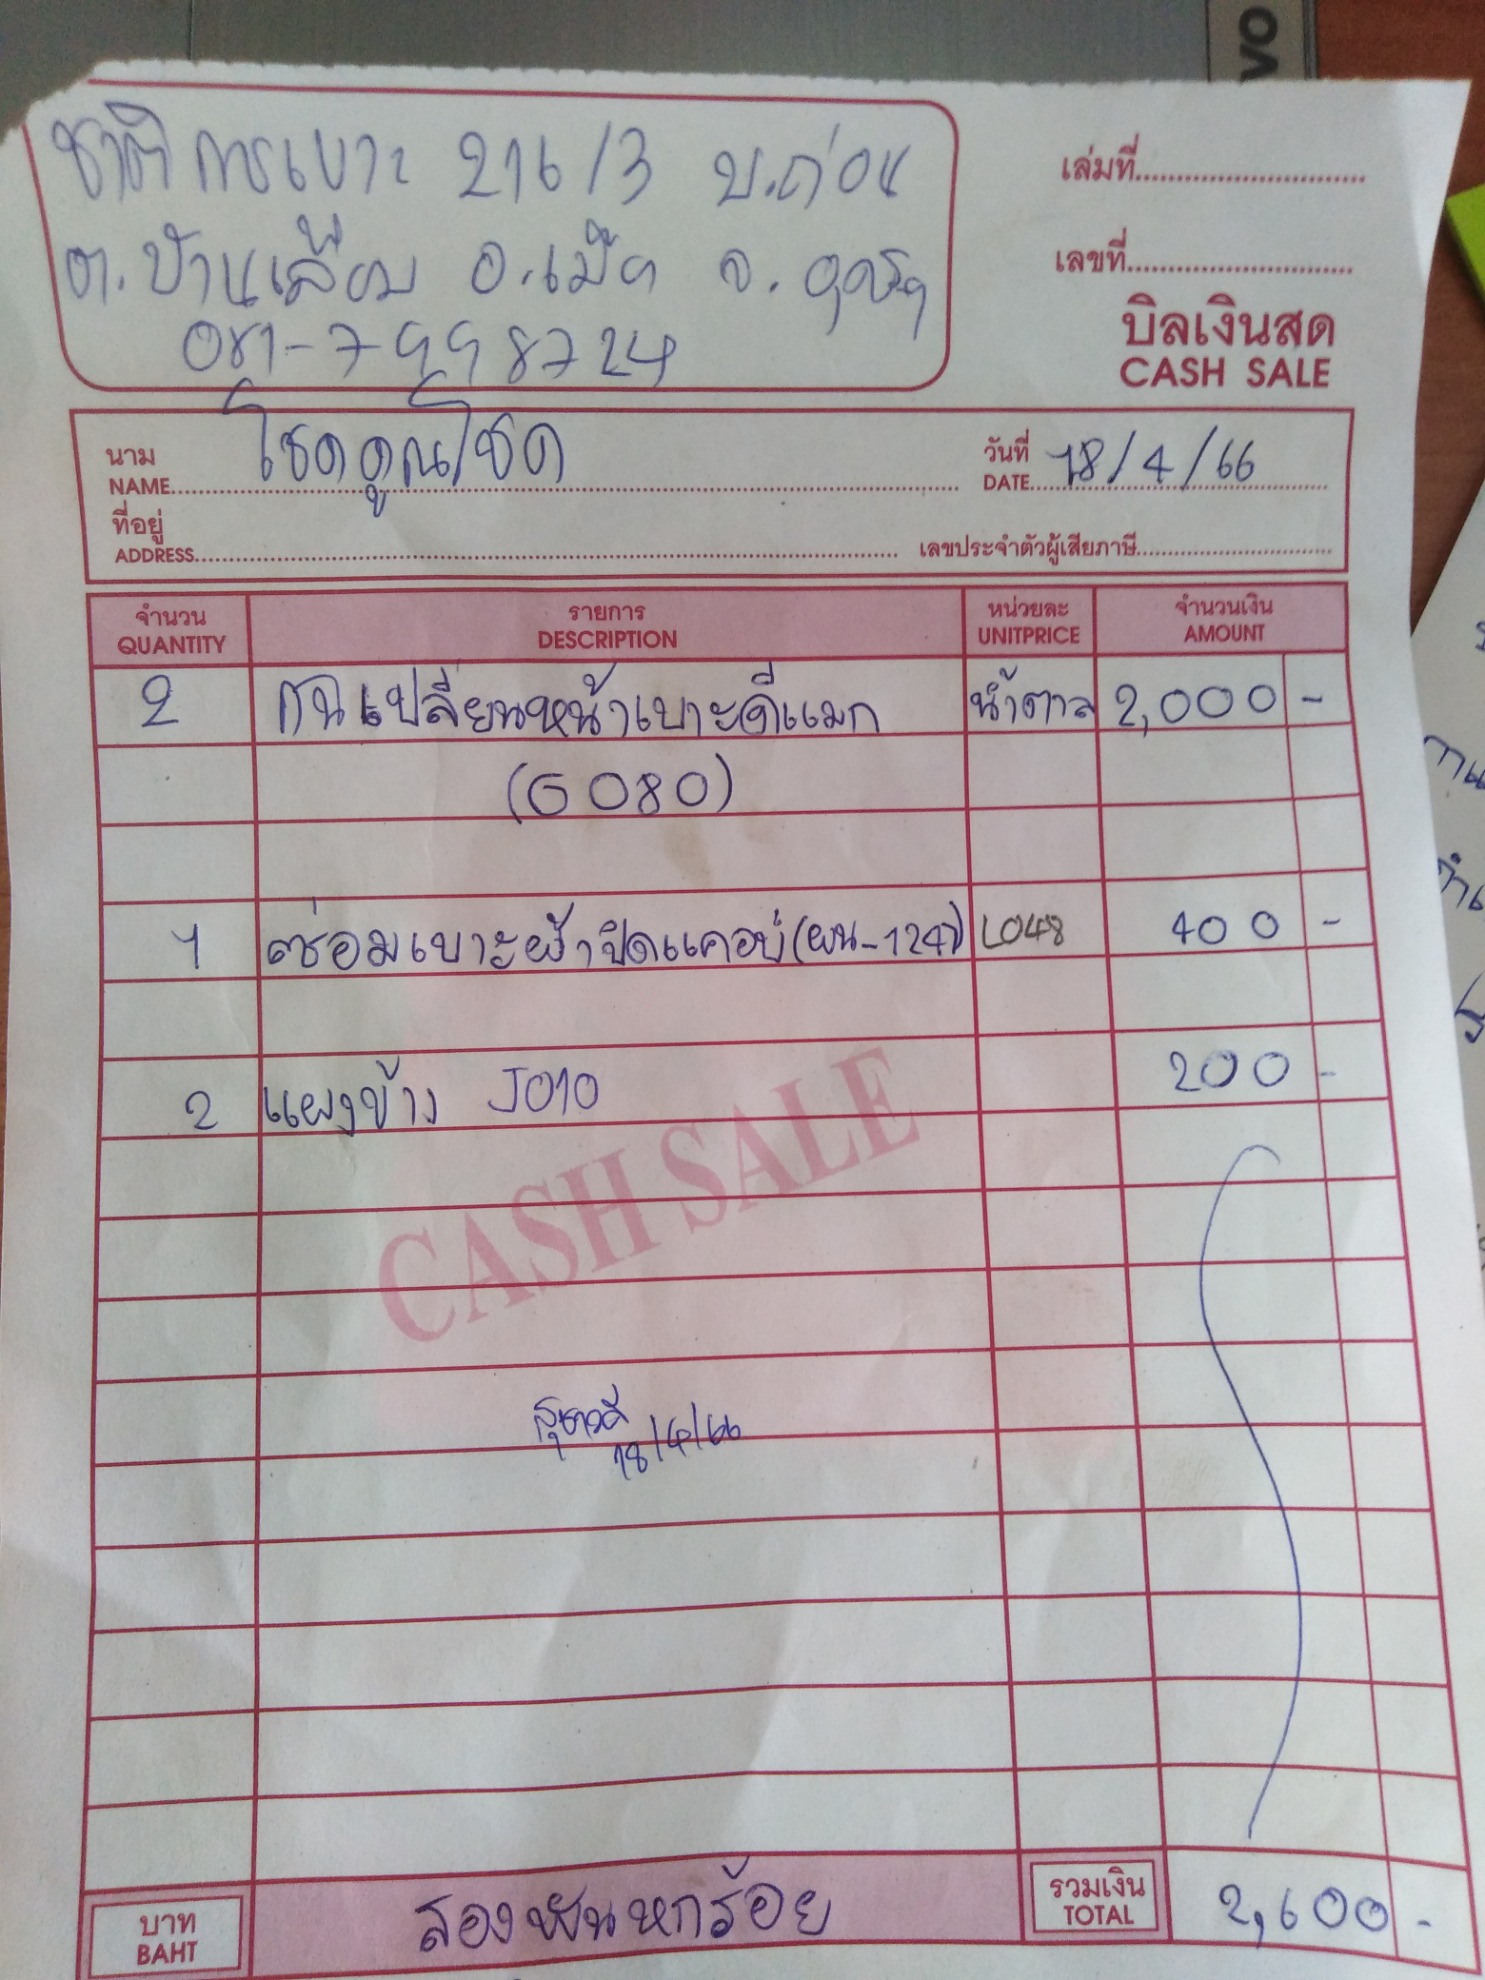 VO
ชาติการเบาะ 216/3 บ.ถ่อน
ต.บ้านเลื่อม อ.เมือง จ.อุดรฯ
081-7998724
เล่มที่
เลขที่
บิลเงินสด
CASH SALE
นาม โชคคูณโชค วันที่ 18/4/66
NAME DATE
ที่อยู่
ADDRESS เลขประจำตัวผู้เสียภาษี
จำนวน รายการ หน่วยละ จำนวนเงิน
QUANTITY DESCRIPTION UNITPRICE AMOUNT
2 เปลี่ยนหน้าเบาะดีแมก น้ำตาล 2,000 -
(G080)
1 ซ่อมเบาะผ้าปิดแคอบ (ผน-1247) L048 400 -
2 แผงข้าง J010 200 -
CASH SALE
สุชาวดี
18/4/66
บาท สองพันหกร้อย รวมเงิน 2,600 -
BAHT TOTAL